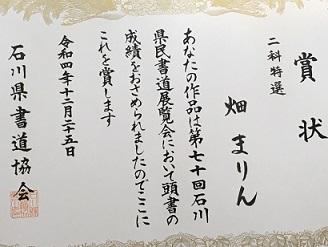 賞状
二科特選
畑まりん
あなたの作品は第七十回石川
県民書道展覧会において頭書の
成績をおさめられましたのでここに
これを賞します
令和四年十二月二十五日
石川県書道協会